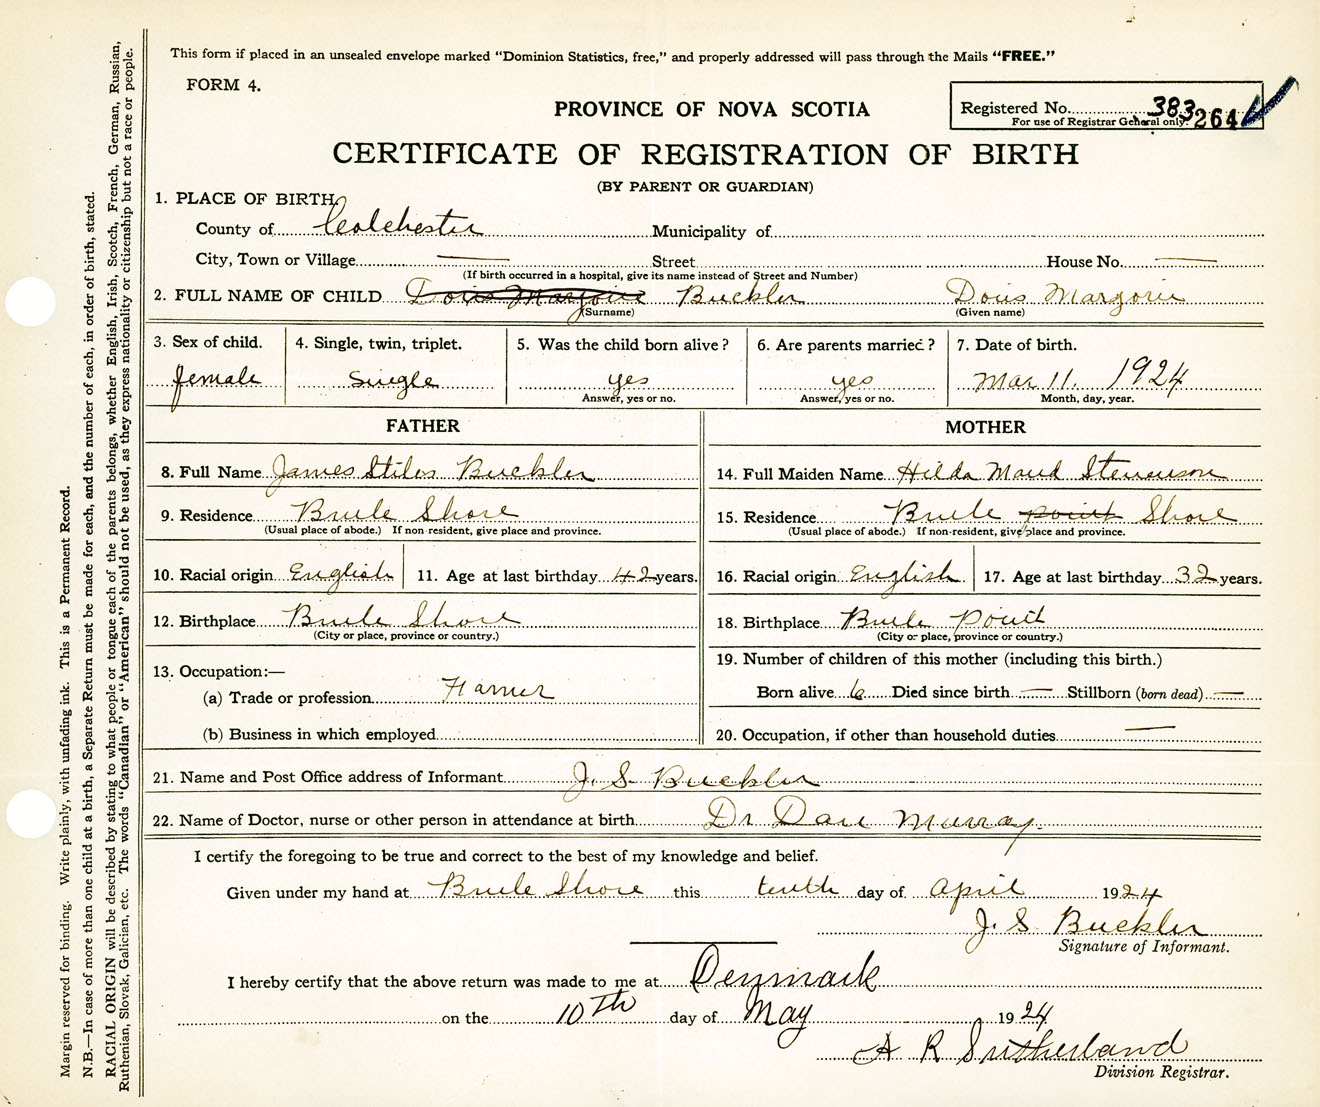 This form if placed in an unsealed envelope marked "Dominion Statistics, free," and properly addressed will pass through the Mails "FREE."
FORM 4.
PROVINCE OF NOVA SCOTIA
Registered No. 383 264
For use of Registrar General only.
CERTIFICATE OF REGISTRATION OF BIRTH
(BY PARENT OR GUARDIAN)
1. PLACE OF BIRTH
County of Colchester Municipality of
City, Town or Village — Street House No. —
(If birth occurred in a hospital, give its name instead of Street and Number)
2. FULL NAME OF CHILD Doris Marjorie Buckler Doris Margorie
(Surname) (Given name)
3. Sex of child. 4. Single, twin, triplet. 5. Was the child born alive? 6. Are parents married? 7. Date of birth.
female single yes yes Mar 11. 1924
Answer, yes or no. Answer, yes or no. Month, day, year.
FATHER MOTHER
8. Full Name James Stiles Buckler 14. Full Maiden Name Hilda Maud Stevenson
9. Residence Brule Shore 15. Residence Brule point Shore
(Usual place of abode.) If non-resident, give place and province. (Usual place of abode.) If non-resident, give place and province.
10. Racial origin English 11. Age at last birthday 42 years. 16. Racial origin English 17. Age at last birthday 32 years.
12. Birthplace Brule Shore 18. Birthplace Brule Point
(City or place, province or country.) (City or place, province or country.)
13. Occupation:— 19. Number of children of this mother (including this birth.)
(a) Trade or profession Farmer Born alive 6 Died since birth — Stillborn (born dead) —
(b) Business in which employed 20. Occupation, if other than household duties —
21. Name and Post Office address of Informant J. S. Buckler
22. Name of Doctor, nurse or other person in attendance at birth Dr Dan Murray.
I certify the foregoing to be true and correct to the best of my knowledge and belief.
Given under my hand at Brule Shore this tenth day of April 1924
J. S. Buckler
Signature of Informant.
I hereby certify that the above return was made to me at Denmark
on the 10th day of May 1924
A R Sutherland
Division Registrar.
Margin reserved for binding. Write plainly, with unfading ink. This is a Permanent Record.
N.B.—In case of more than one child at a birth, a Separate Return must be made for each, and the number of each, in order of birth, stated.
RACIAL ORIGIN will be described by stating to what people or tongue each of the parents belongs, whether English, Irish, Scotch, French, German, Russian,
Ruthenian, Slovak, Galician, etc. The words "Canadian" or "American" should not be used, as they express nationality or citizenship but not a race or people.